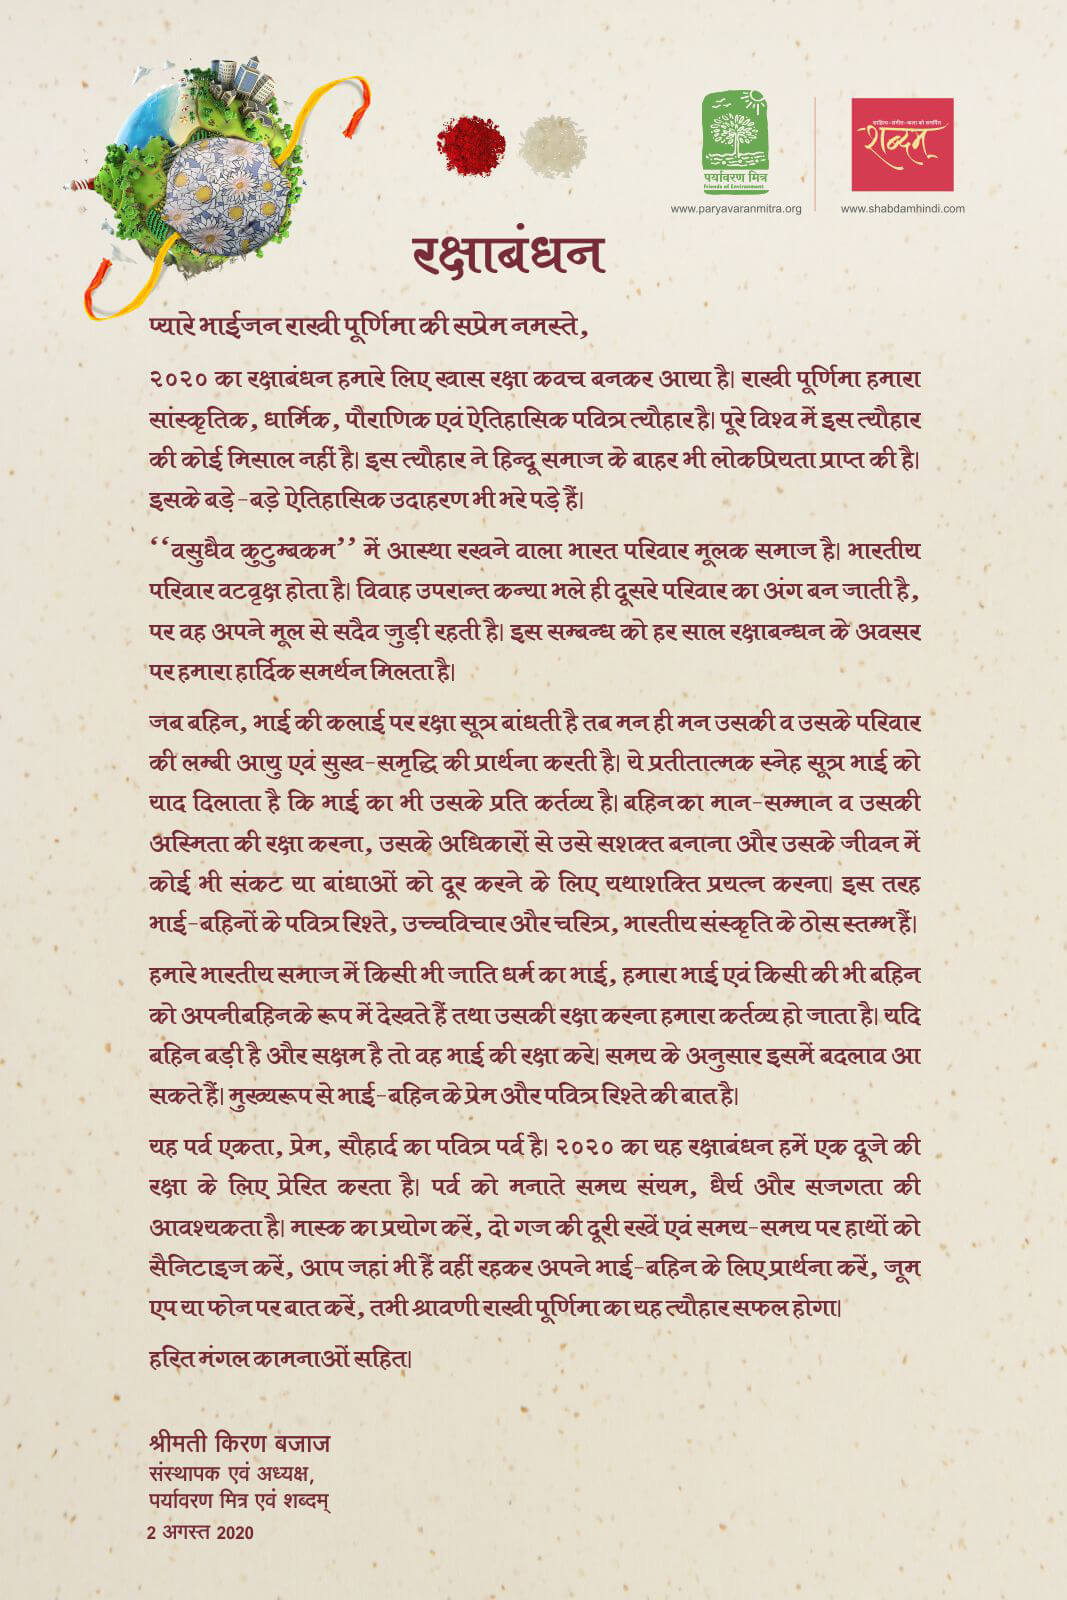 पर्यावरण मित्र
Friends of Environment
www.paryavaranmitra.org
साहित्य-संगीत-कला को समर्पित
शब्दम्
www.shabdamhindi.com
रक्षाबंधन
प्यारे भाईजन राखी पूर्णिमा की सप्रेम नमस्ते,
२०२० का रक्षाबंधन हमारे लिए खास रक्षा कवच बनकर आया है। राखी पूर्णिमा हमारा
सांस्कृतिक, धार्मिक, पौराणिक एवं ऐतिहासिक पवित्र त्यौहार है। पूरे विश्व में इस त्यौहार
की कोई मिसाल नहीं है। इस त्यौहार ने हिन्दू समाज के बाहर भी लोकप्रियता प्राप्त की है।
इसके बड़े-बड़े ऐतिहासिक उदाहरण भी भरे पड़े हैं।
‘‘वसुधैव कुटुम्बकम’’ में आस्था रखने वाला भारत परिवार मूलक समाज है। भारतीय
परिवार वटवृक्ष होता है। विवाह उपरान्त कन्या भले ही दूसरे परिवार का अंग बन जाती है,
पर वह अपने मूल से सदैव जुड़ी रहती है। इस सम्बन्ध को हर साल रक्षाबन्धन के अवसर
पर हमारा हार्दिक समर्थन मिलता है।
जब बहिन, भाई की कलाई पर रक्षा सूत्र बांधती है तब मन ही मन उसकी व उसके परिवार
की लम्बी आयु एवं सुख-समृद्धि की प्रार्थना करती है। ये प्रतीतात्मक स्नेह सूत्र भाई को
याद दिलाता है कि भाई का भी उसके प्रति कर्तव्य है। बहिनका मान-सम्मान व उसकी
अस्मिता की रक्षा करना, उसके अधिकारों से उसे सशक्त बनाना और उसके जीवन में
कोई भी संकट या बांधाओं को दूर करने के लिए यथाशक्ति प्रयत्न करना। इस तरह
भाई-बहिनों के पवित्र रिश्ते, उच्चविचार और चरित्र, भारतीय संस्कृति के ठोस स्तम्भ हैं।
हमारे भारतीय समाज में किसी भी जाति धर्म का भाई, हमारा भाई एवं किसी की भी बहिन
को अपनीबहिनके रूप में देखते हैं तथा उसकी रक्षा करना हमारा कर्तव्य हो जाता है। यदि
बहिन बड़ी है और सक्षम है तो वह भाई की रक्षा करे। समय के अनुसार इसमें बदलाव आ
सकते हैं। मुख्यरूप से भाई-बहिन के प्रेम और पवित्र रिश्ते की बात है।
यह पर्व एकता, प्रेम, सौहार्द का पवित्र पर्व है। २०२० का यह रक्षाबंधन हमें एक दूजे की
रक्षा के लिए प्रेरित करता है। पर्व को मनाते समय संयम, धैर्य और सजगता की
आवश्यकता है। मास्क का प्रयोग करें, दो गज की दूरी रखें एवं समय-समय पर हाथों को
सैनिटाइज करें, आप जहां भी हैं वहीं रहकर अपने भाई-बहिन के लिए प्रार्थना करें, जूम
एप या फोन पर बात करें, तभी श्रावणी राखी पूर्णिमा का यह त्यौहार सफल होगा।
हरित मंगल कामनाओं सहित।
श्रीमती किरण बजाज
संस्थापक एवं अध्यक्ष,
पर्यावरण मित्र एवं शब्दम्
2 अगस्त 2020